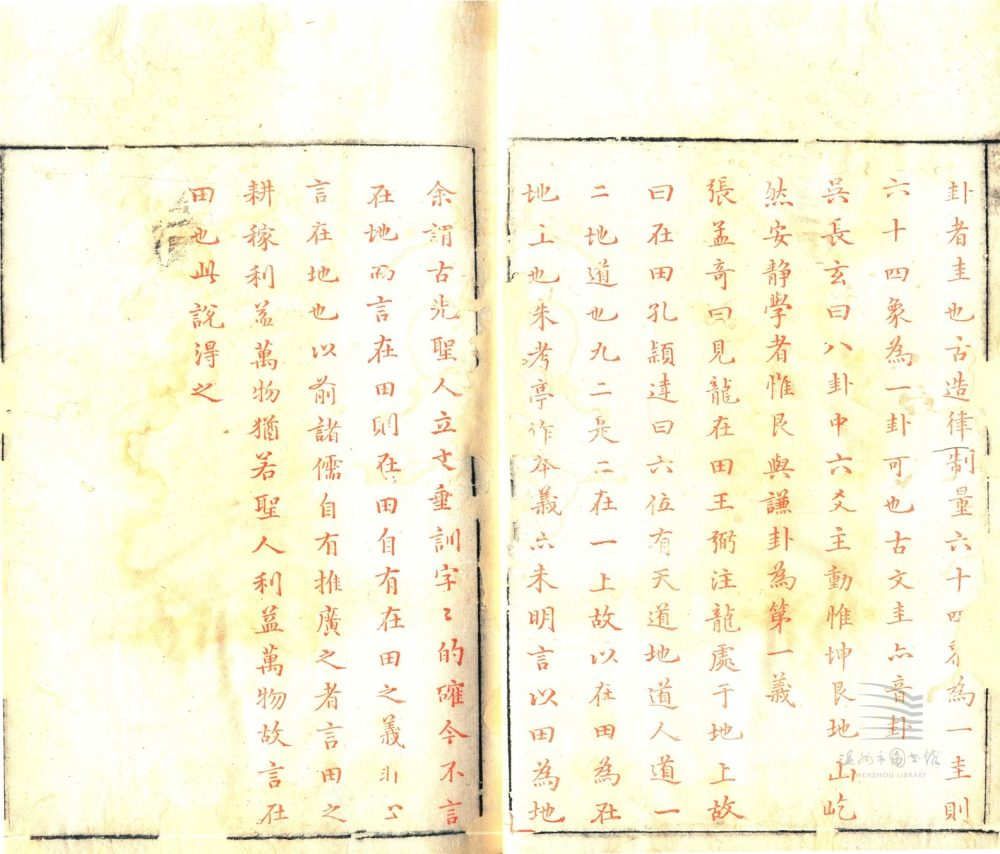 卦者圭也古造律制量六十四黍為一圭則
六十四象為一卦可也古文圭亦音卦
吳長玄曰八卦中六爻主動惟坤艮地山屹
然安靜學者惟艮與謙卦為第一義
張孟奇曰見龍在田王弼注龍處于地上故
曰在田孔穎達曰六位有天道地道人道一
二地道也九二是二在一上故以在田為在
地上也朱考亭作本義亦未明言以田為地
余謂古先聖人立文垂訓字〻的確今不言
在地而言在田則在田自有在田之義非止
言在地也以前諸儒自有推廣之者言田之
耕稼利益萬物猶若聖人利益萬物故言在
田也此說得之
溫州市圖書館
WENZHOU LIBRARY